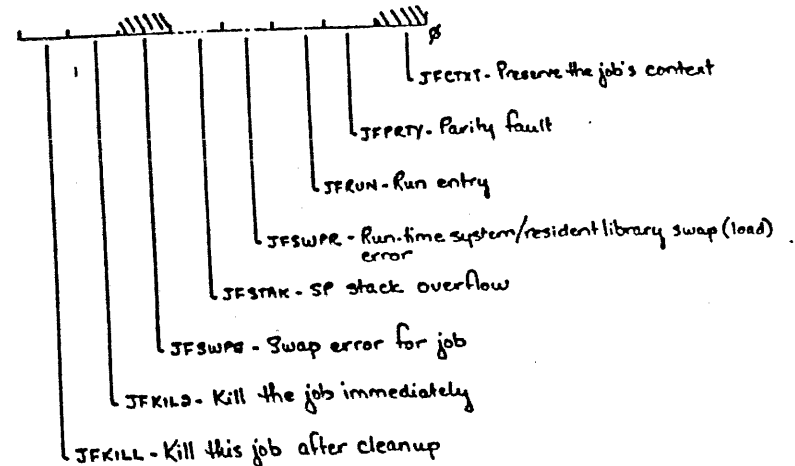 Ø
JFCTXT - Preserve the job's context
JFPRTY - Parity fault
JFRUN - Run entry
JFSWPR - Run-time system/resident library swap (load)
error
JFSTAK - SP stack overflow
- Swap error for job
- Kill the job immediately
JFKILL - Kill this job after cleanup